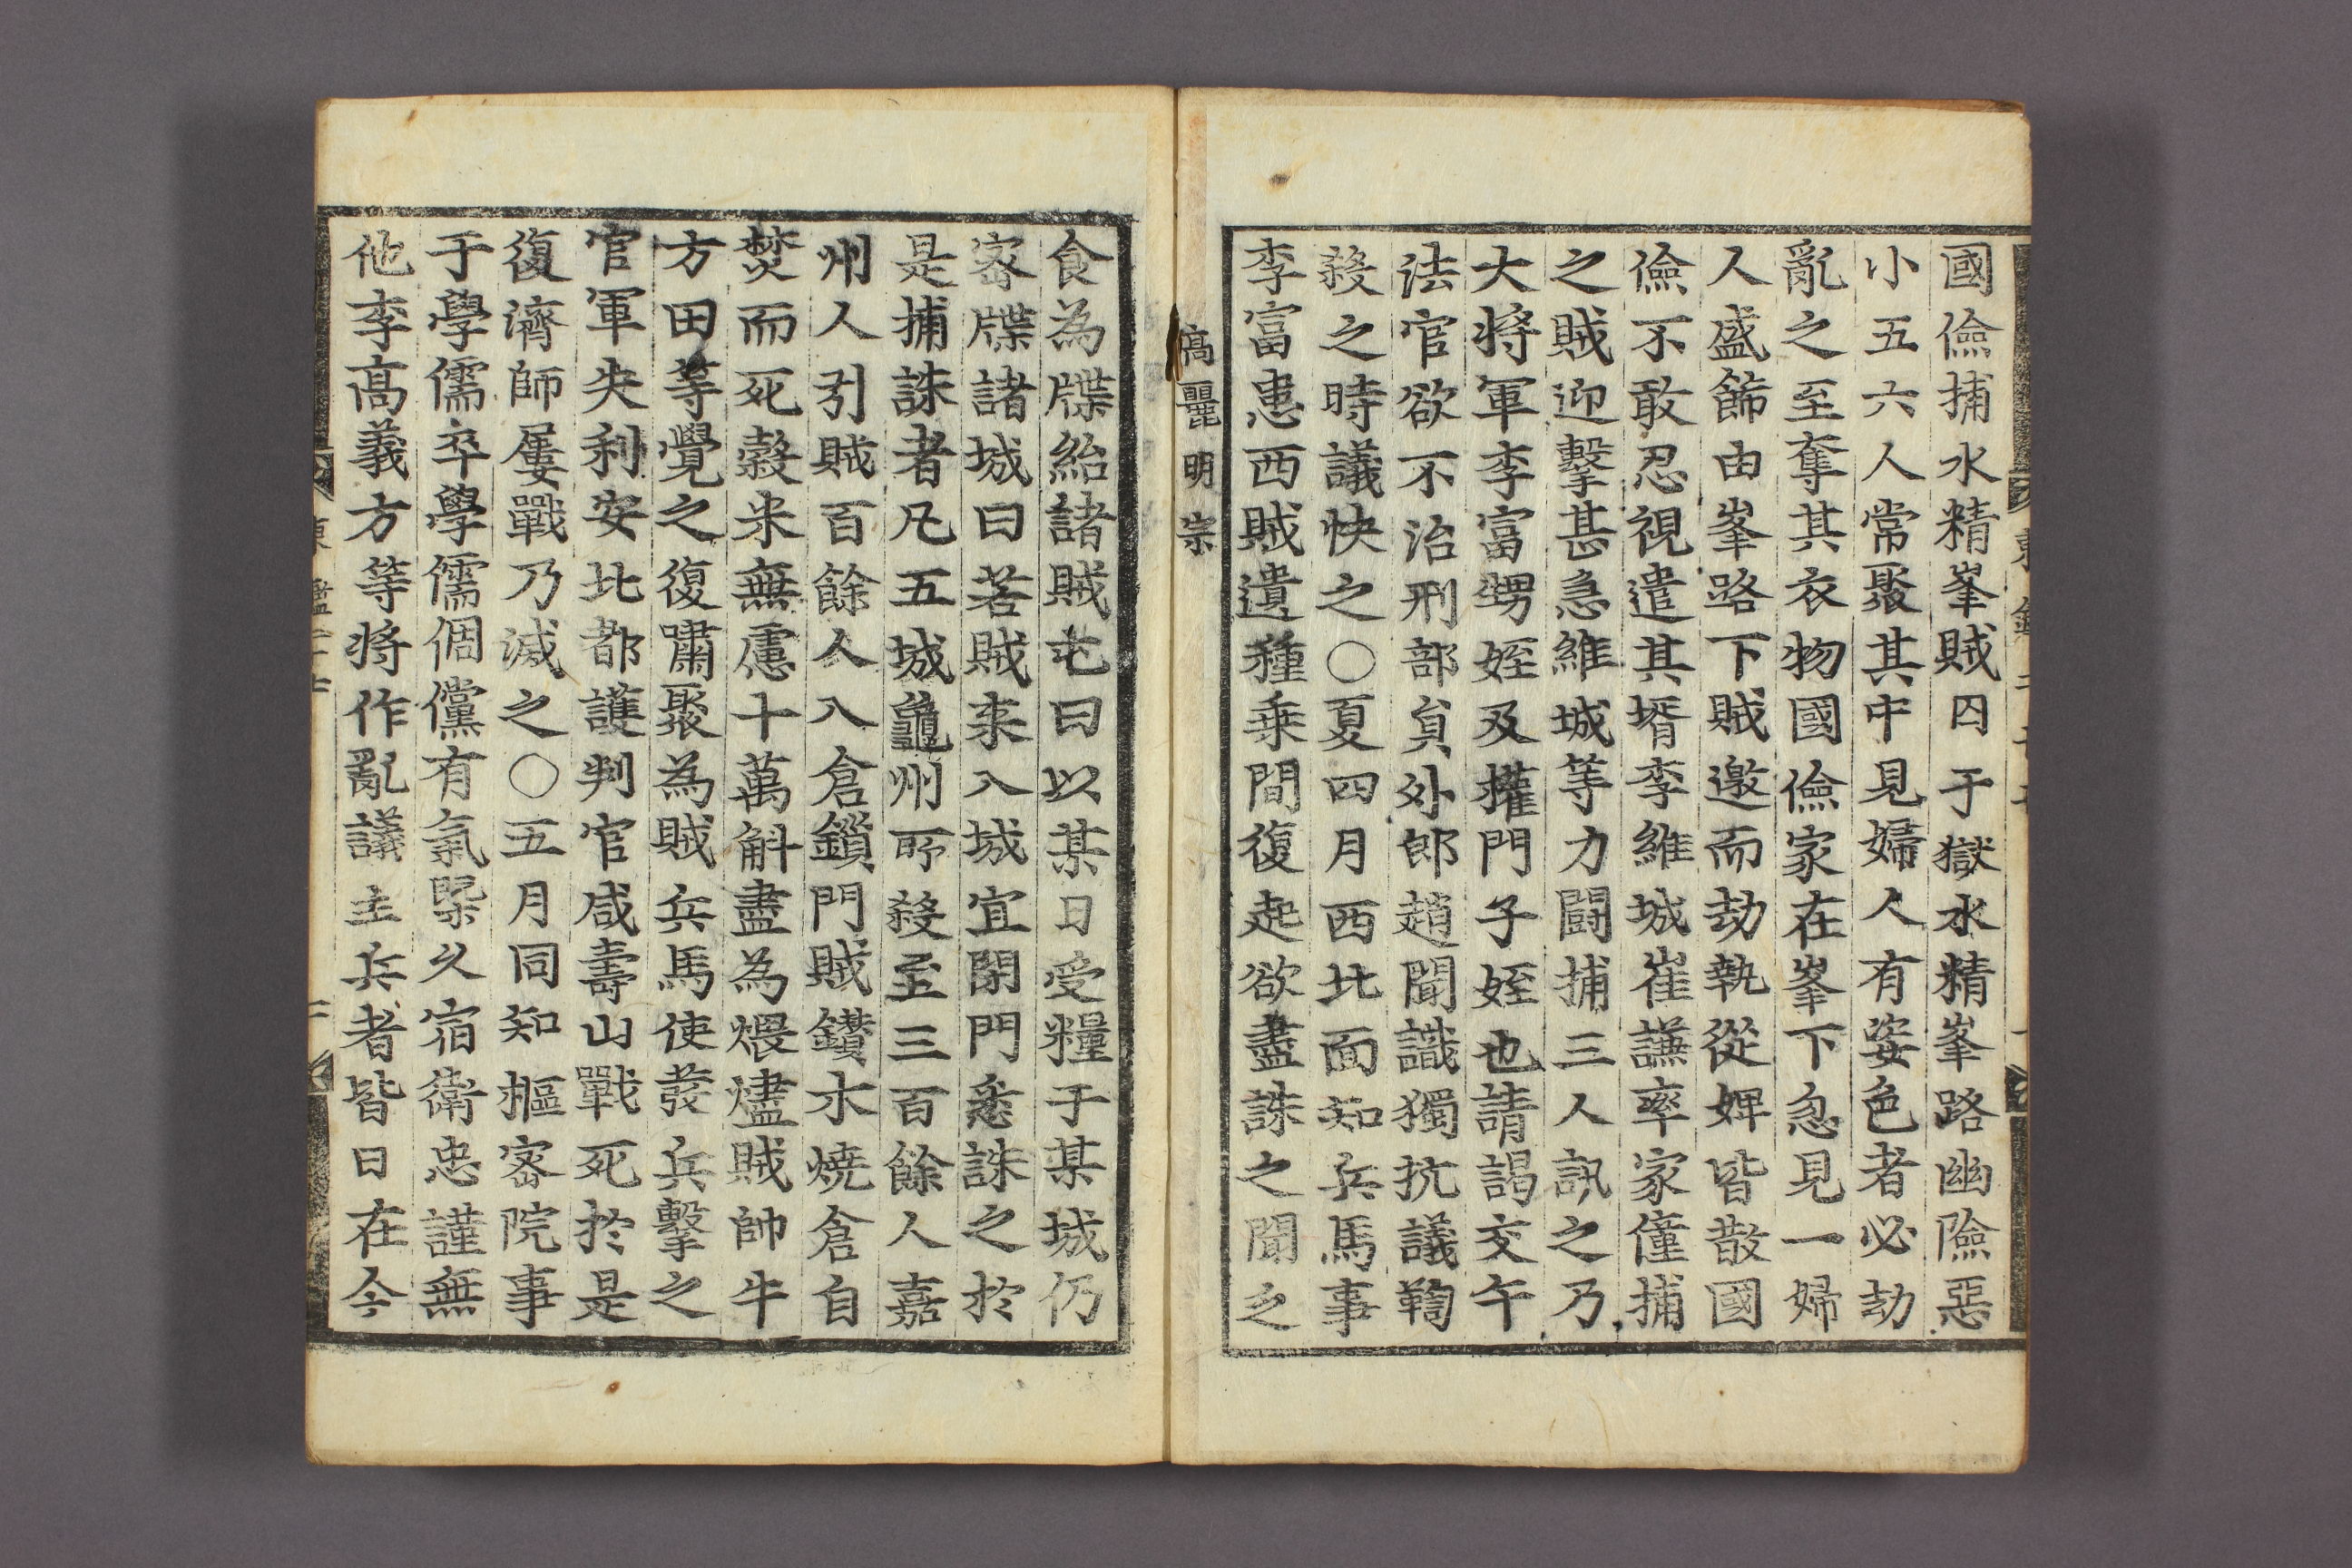 國儉捕水精峯賊囚于獄水精峯路幽險惡
小五六人常聚其中見婦人有姿色者必劫
亂之至奪其衣物國儉家在峯下忽見一婦
人盛飾由峯路下賊邀而劫執從婢皆散國
儉不敢忍視遣其壻李維城崔謙率家僮捕
之賊迎擊甚急維城等力鬪捕三人訊之乃
大將軍李富甥姪及權門子姪也請謁交午
法官欲不治刑部員外郎趙聞識獨抗議鞫
殺之時議快之○夏四月西北面知兵馬事
李富患西賊遺種乘間復起欲盡誅之聞乏
高麗明宗
食為牒紿諸賊屯曰以某日受糧于某城仍
密牒諸城曰若賊来入城宜閉門悉誅之於
是捕誅者凡五城龜州所殺至三百餘人嘉
州人引賊百餘人入倉鎖門賊鑚木燒倉自
焚而死穀米無慮十萬斛盡為煨燼賊帥牛
方田等覺之復嘯聚為賊兵馬使發兵擊之
官軍失利安北都護判官咸壽山戰死於是
復濟師屢戰乃滅之○五月同知樞密院事
于學儒卒學儒倜儻有氣槩久宿衛忠謹無
他李高義方等將作亂議主兵者皆曰在今